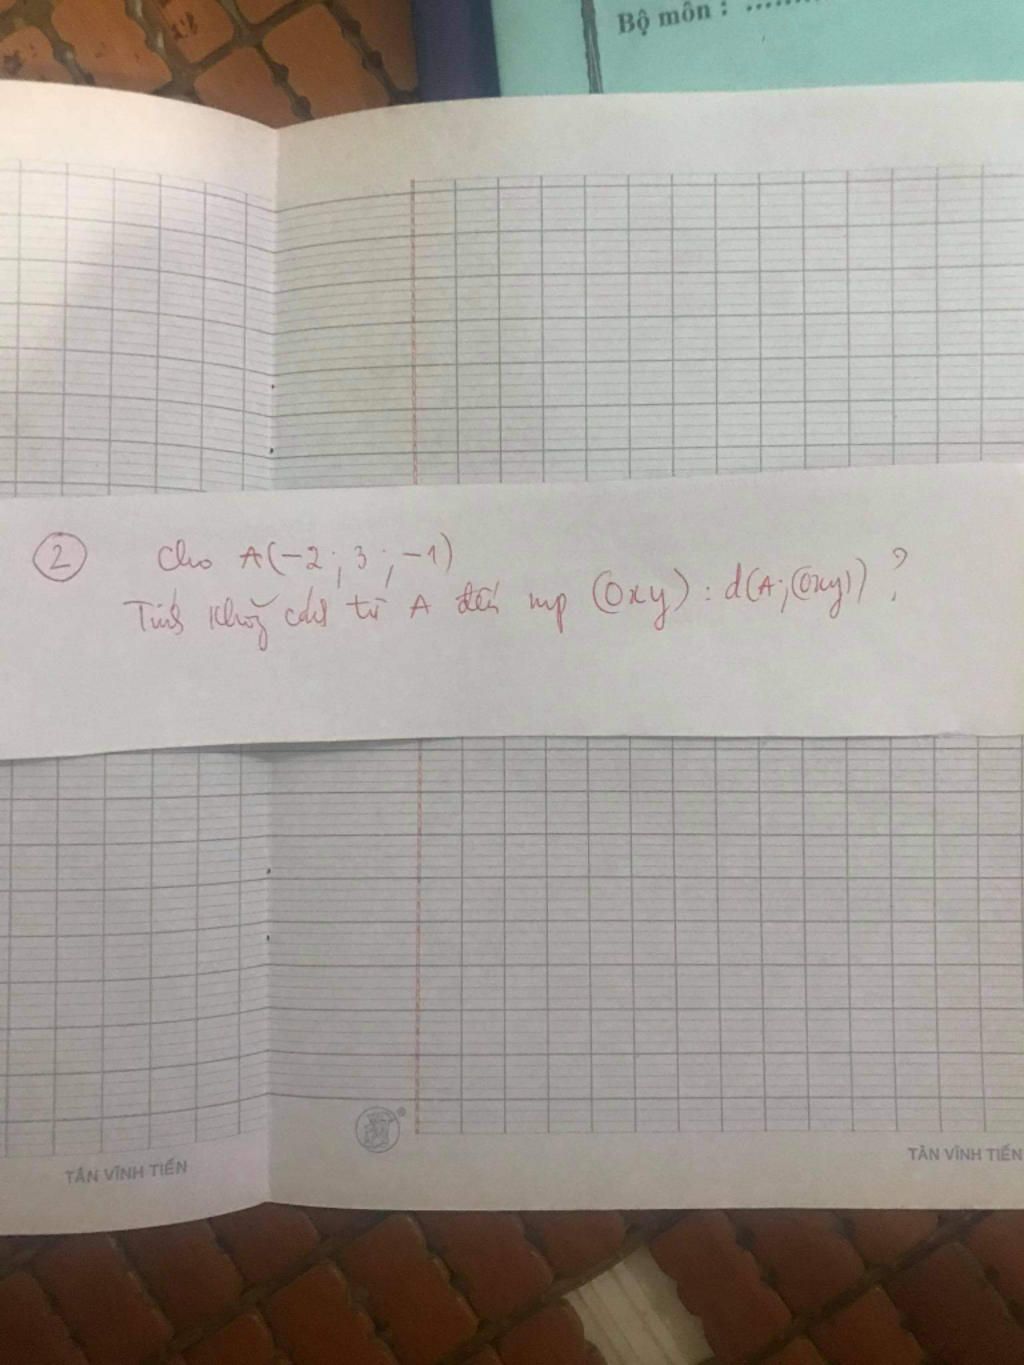 Bộ môn : ........
② Cho A(-2 ; 3 ; -1)
Tính khoảng cách từ A đến mp (Oxy) : d(A; (Oxy)) ?
TÂN VĨNH TIẾN
TÂN VĨNH TIẾN